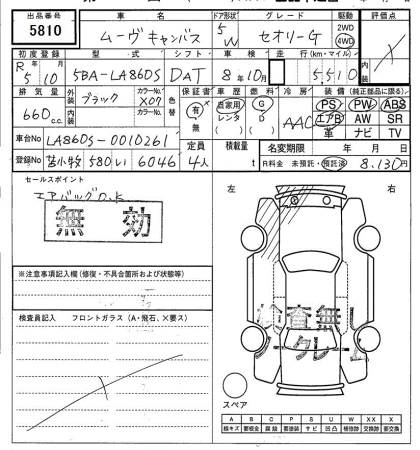 出品番号 車名 ドア形状 グレード 駆動 評価点
5810 ムーヴキャンバス 5 W セオリーG 2WD 4WD
初度登録 型式 シフト 車検 走行(km・マイル)
R5 10 5BA-LA860S DAT 8年10月 5510
排気量 外装 ブラック カラーNo. X07 色替 保証書 車歴 燃料 冷房 装備(純正部品に限る)
660cc 内装 カラーNo. 有・無 自家用 レンタ G D AAC PS PW ABS
エアB AW SR
革 ナビ TV
車台No LA860S-0010261 定員 積載量 名変期限 年 月 日
登録No 苫小牧 580 い 6046 4人 t R料金 未預託・預託済 8,130円
セールスポイント
無効
左 右
※注意事項記入欄(修復・不具合箇所および状態等)
検査員記入 フロントガラス(A・飛石、×要ス)
検査無し
ノークレーム
スペア
A B C P S U W X XX
線キズ 要板金 腐蝕 要塗装 サビ 凹凸 補修跡 交換跡 要交換